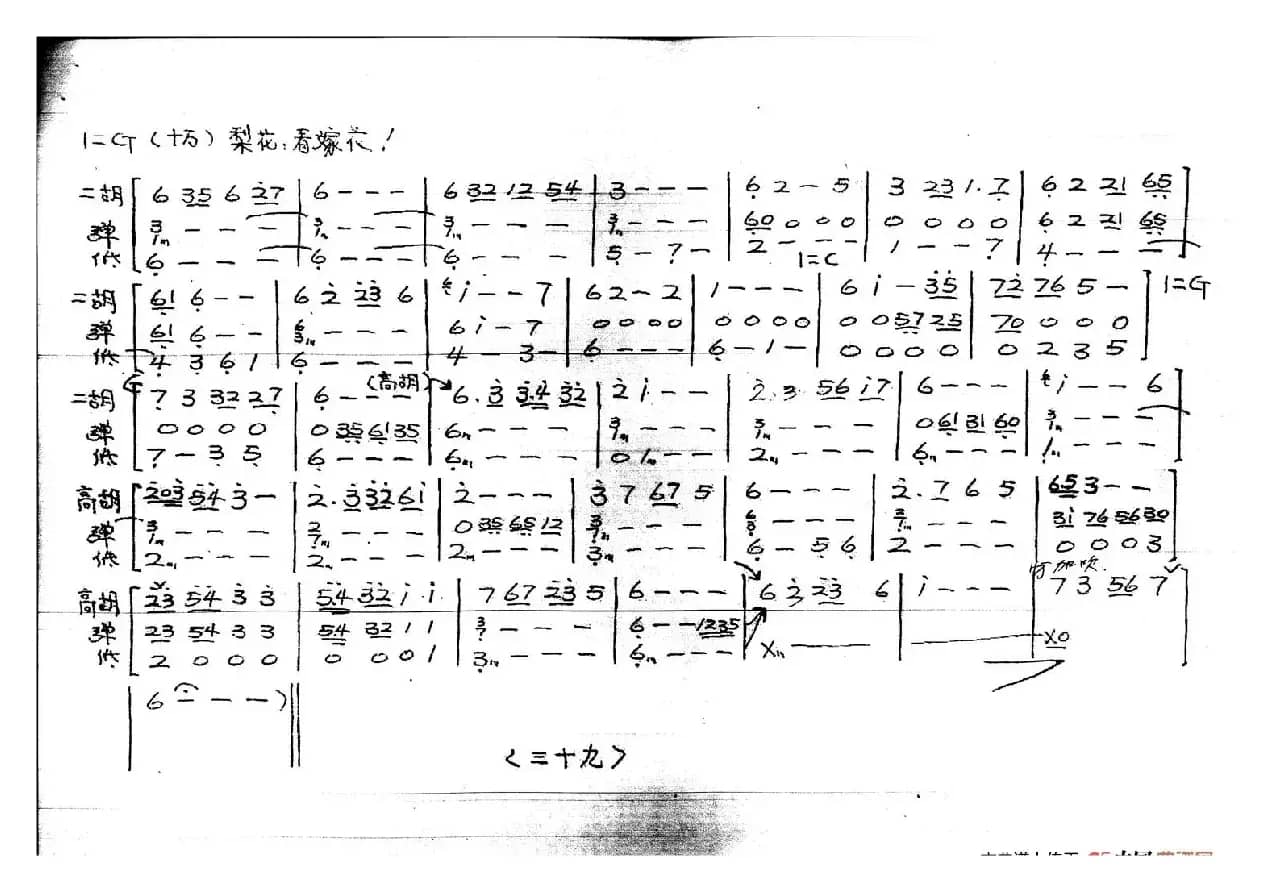 1=G（十万）梨花：看嫁衣！
二胡 [ 6 35 6 27 | 6 - - - | 6 32 12 54 | 3 - - - | 6 2 - 5 | 3 23 1. 7 | 6 2 21 65 ]
弹 3/1 - - - | 3/1 - - - | 3/1 - - - | 3/1 - - - | 60 0 0 0 | 0 0 0 0 | 6 2 21 65
低 6 - - - | 6 - - - | 6 - - - | 5 - 7 - | 2 - - - | 1 - - 7 | 4 - - -
1=C
二胡 [ 61 6 - - | 6 2 23 6 | i - - 7 | 6 2 - 2 | 1 - - - | 6 i - 35 | 72 76 5 - ] 1=G
弹 61 6 - - | 6/3 - - - | 6 i - 7 | 0 0 0 0 | 0 0 0 0 | 0 0 57 25 | 70 0 0 0
低 4 3 6 1 | 6 - - - | 4 - 3 - | 6 - - - | 6 - 1 - | 0 0 0 0 | 0 2 3 5
G （高胡）
二胡 [ 7 3 32 27 | 6 - - - | 6. 3 3.4 32 | 2 i - - | 2. 3 56 i7 | 6 - - - | i - - 6 ]
弹 0 0 0 0 | 0 35 61 35 | 6 - - - | 3/1 - - - | 3/1 - - - | 0 61 31 60 | 3/1 - - -
低 7 - 3 5 | 6 - - - | 6 - - - | 0 1 - - | 2 - - - | 6 - - - | 1 - - -
高胡 [ 203 54 3 - | 2. 3 32 61 | 2 - - - | 3 7 67 5 | 6 - - - | 2. 7 6 5 | 65 3 - - ]
弹 3/1 - - - | 2/7 - - - | 0 35 65 12 | 3/7 - - - | 6/3 - - - | 2/1 - - - | 31 76 56 30
低 2 - - - | 2 - - - | 2 - - - | 3 - - - | 6 - 5 6 | 2 - - - | 0 0 0 3
可加吹.
高胡 [ 23 54 3 3 | 5.4 32 i i | 7 67 23 5 | 6 - - - | 6 3 23 6 | i - - - | 7 3 56 7 ]
弹 23 54 3 3 | 54 32 1 1 | 3/7 - - - | 6 - - 1235
低 2 0 0 0 | 0 0 0 1 | 3 - - - | 6 - - - | X | X0
6 - - - ) ||
〈三十九〉